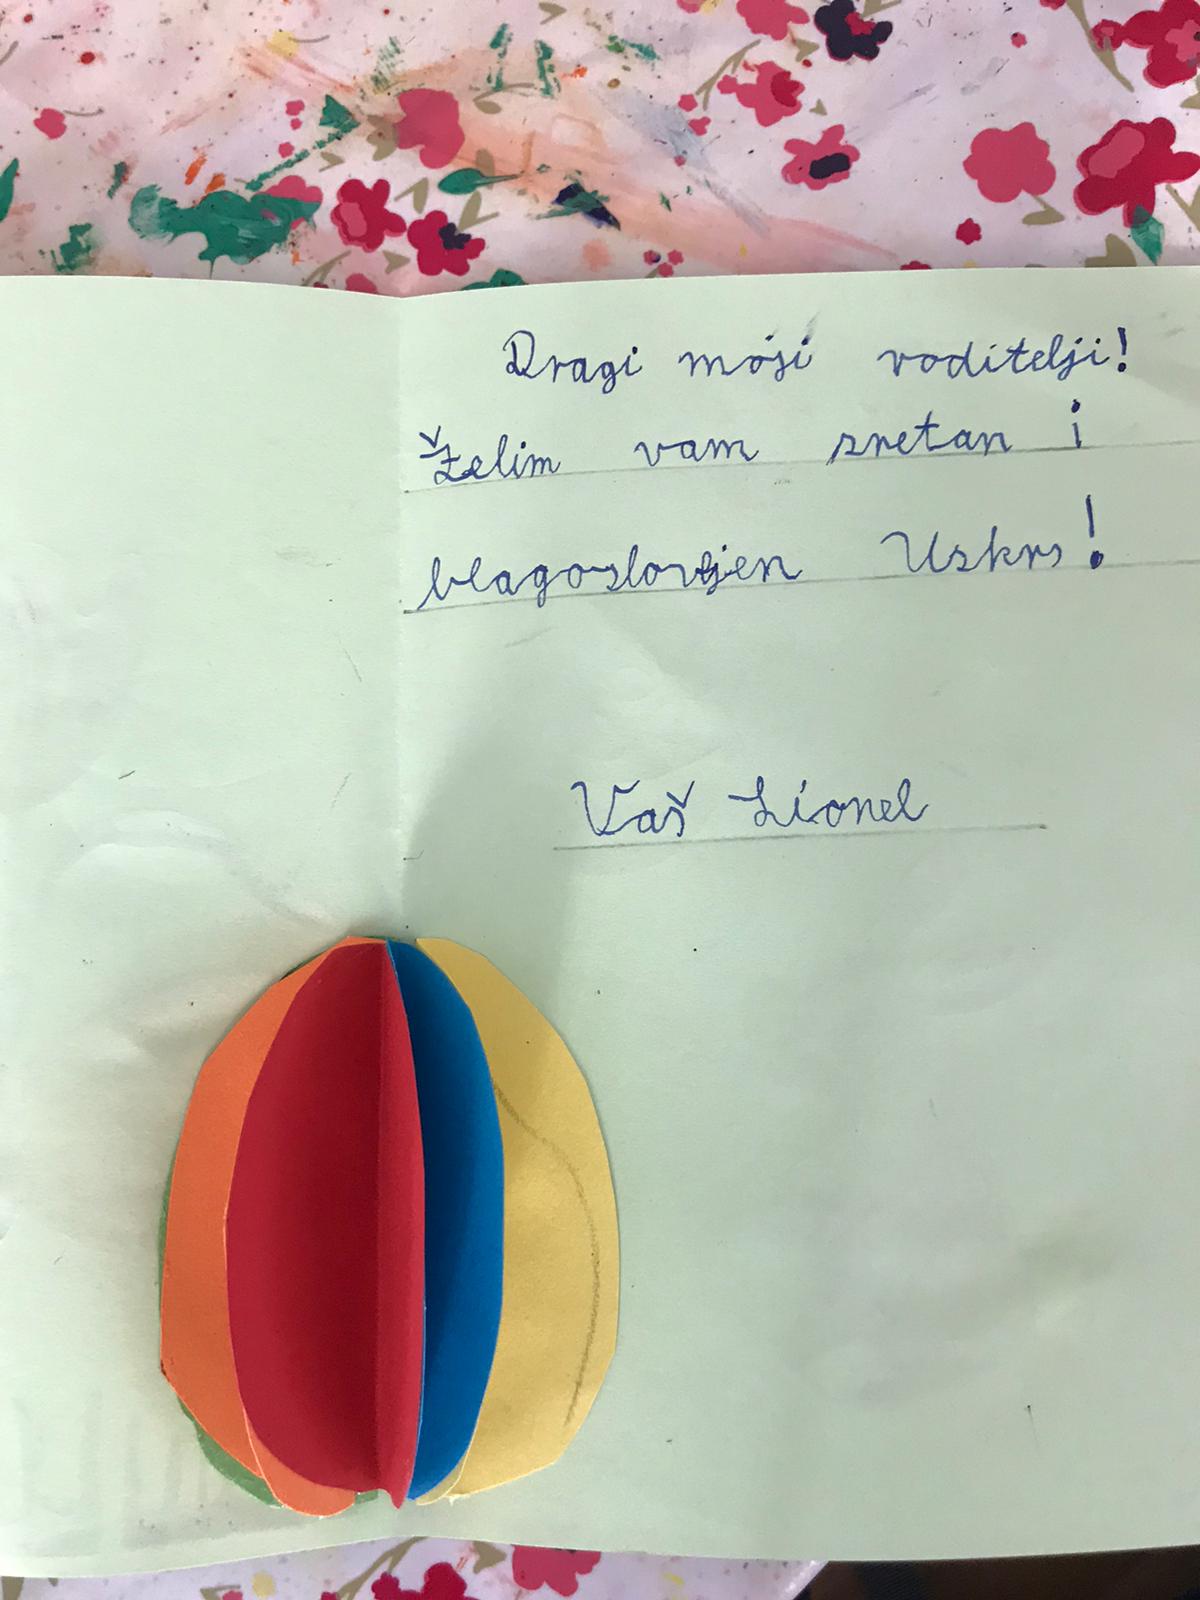 Dragi moji roditelji!
Želim vam sretan i
blagoslovljen Uskrs!
Vaš Lionel